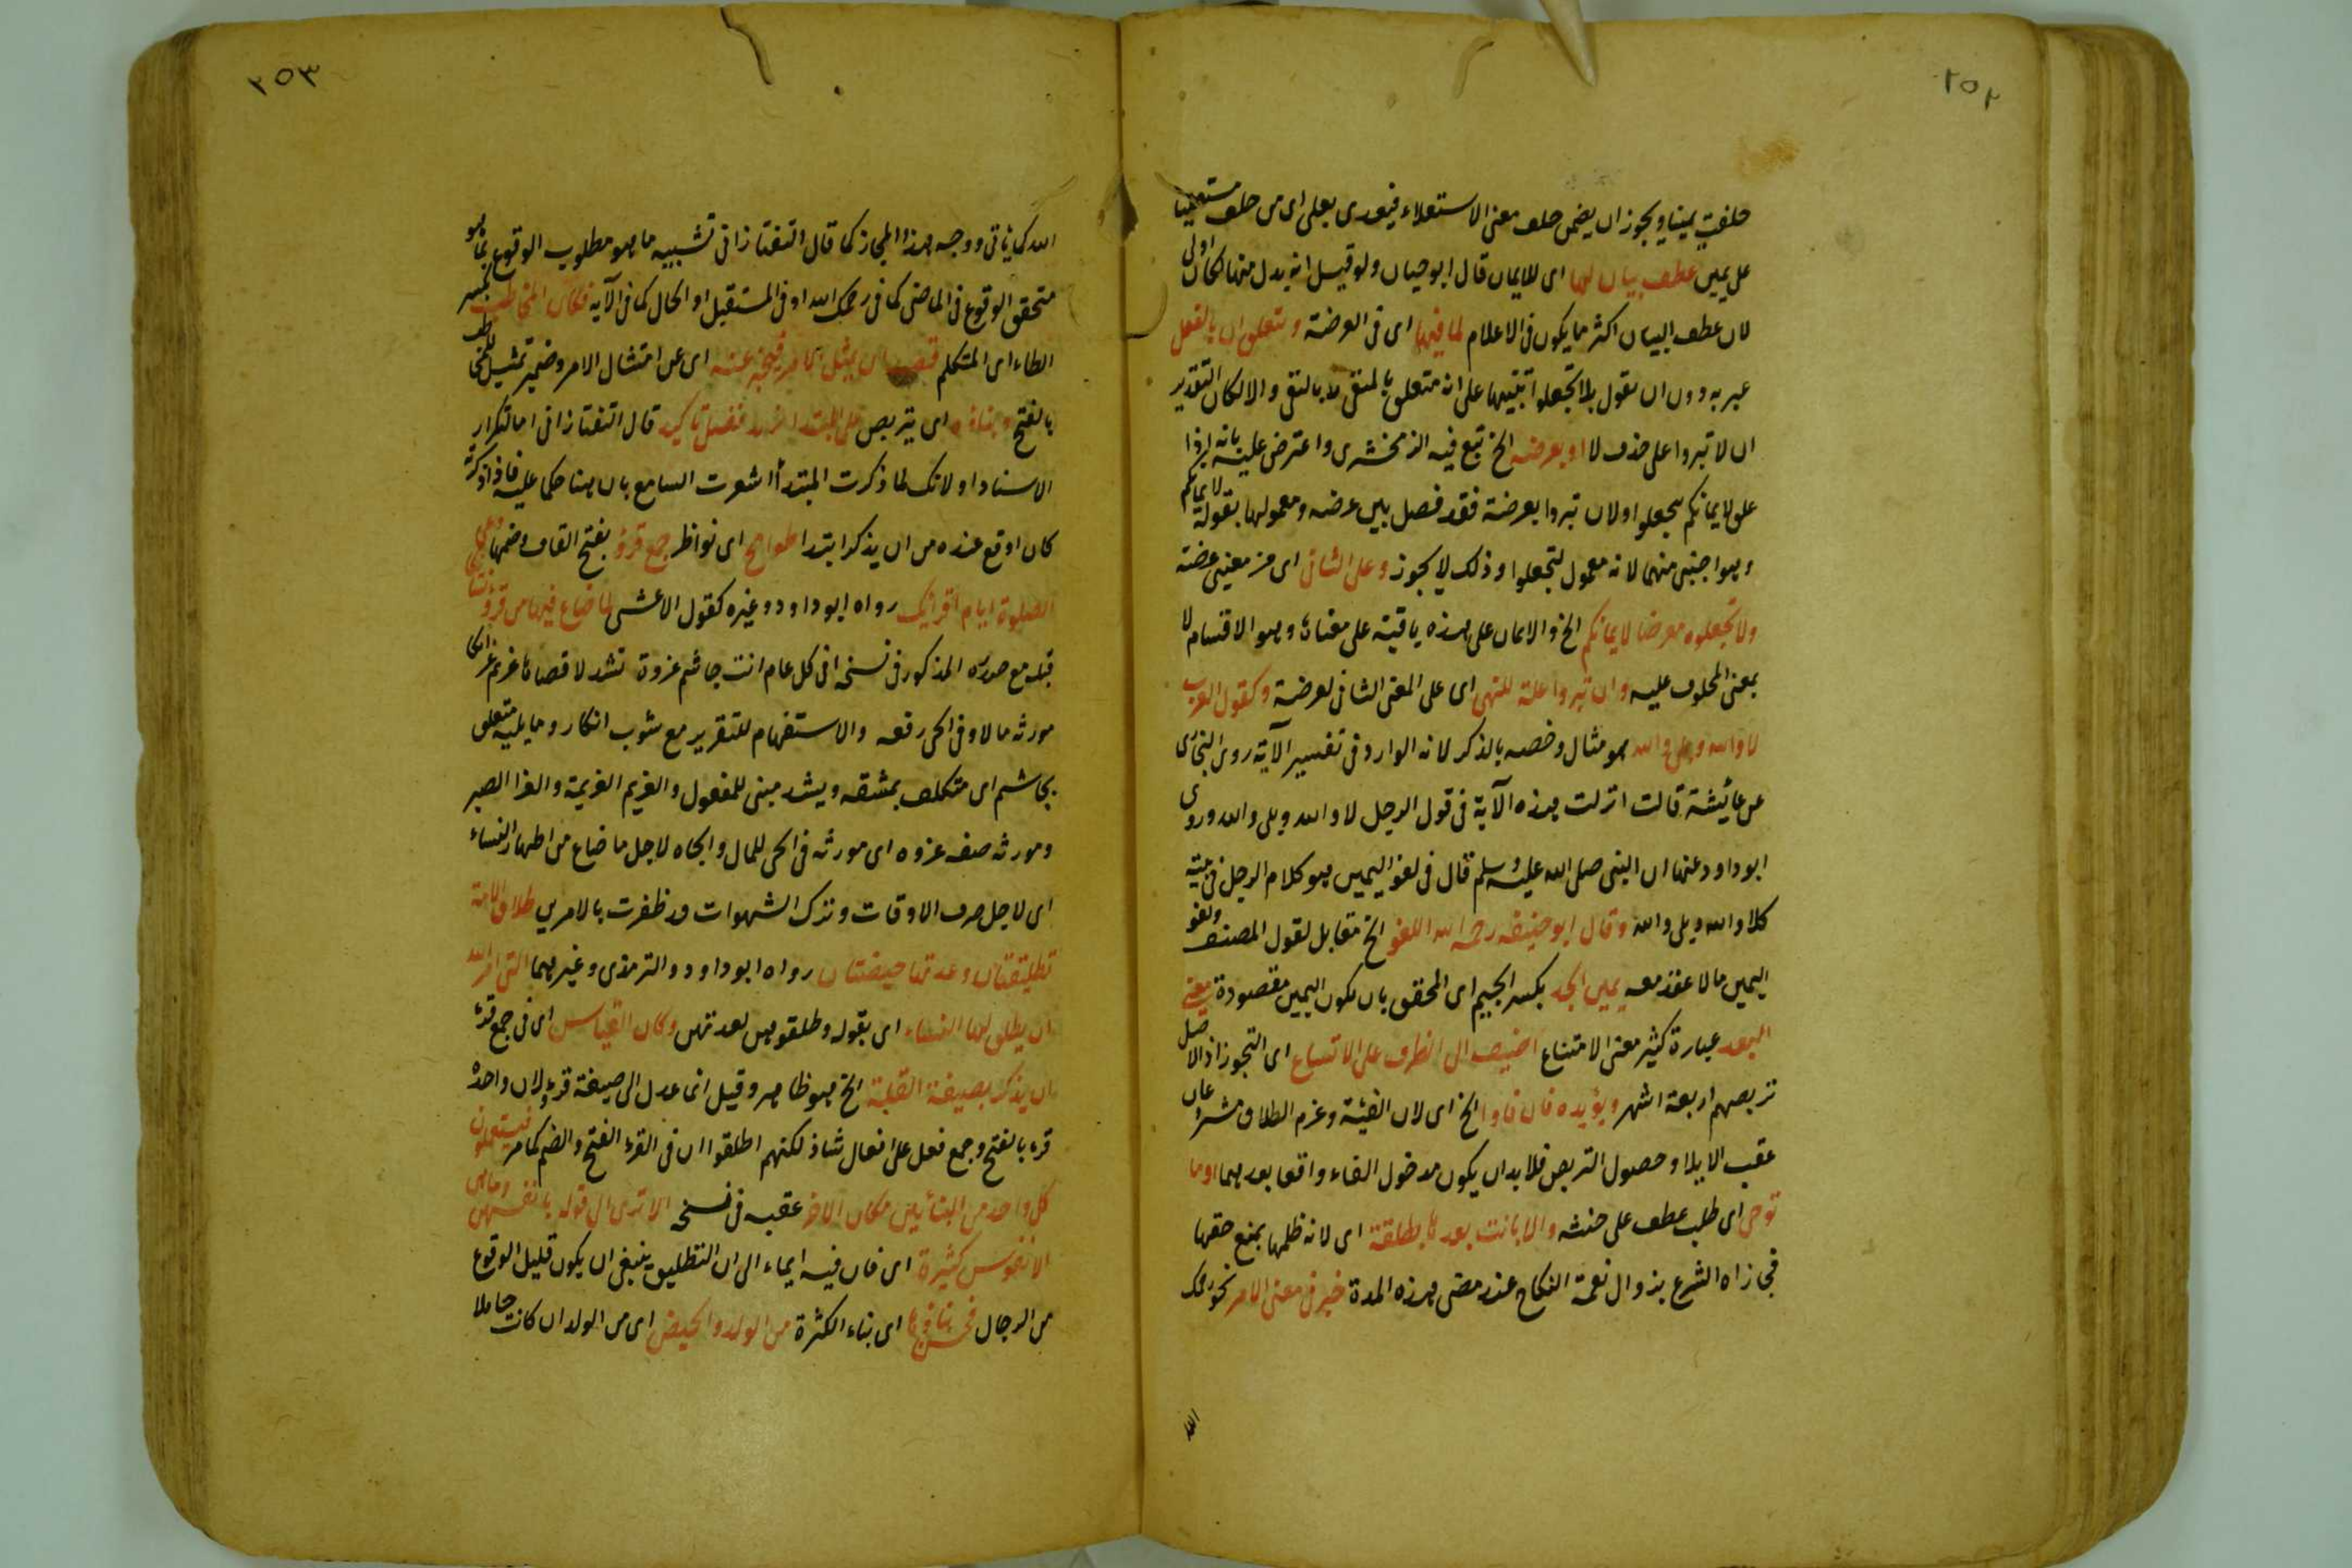 ٢٥٢
حلفت يمينا ويجوز ان يضمن حلف معنى الاستعلاء فيعدى بعلى اى من حلف مستعليا
على يمين عطف بيان لها اى للايمان قال ابو حيان ولو قيل انه بدل منها لكان اولى
لان عطف البيان اكثر ما يكون فى الاعلام لما فيها اى فى العرضة ويتعلق ان بالفعل
عبر به دون ان يقول بلا تجعلوا تنبيها على انه متعلق بالمنفى لا بالنفى والا لكان التقدير
ان لا تبروا على حذف لا او بعرضة الخ تبع فيه الزمخشرى واعترض عليه بانه اذا
علق لايمانكم بتجعلوا ولان تبروا بعرضة فقد فصل بين عرضة ومعمولها بقوله لايمانكم
وهو اجنبى منهما لانه معمول لتجعلوا وذلك لا يجوز وعلى الثانى اى من معنيى عرضة
ولا تجعلوه معرضا لايمانكم الخ والايمان على هذه باقية على معناها وهو الاقسام لا
بمعنى المحلوف عليه وان تبروا علة للنهى اى على المعنى الثانى لعرضة وكقول العرب
لا والله وبلى والله هو مثال وخصه بالذكر لانه الوارد فى تفسير الآية روى البخارى
عن عائشة قالت انزلت هذه الآية فى قول الرجل لا والله وبلى والله وروى
ابو داود عنها ان النبى صلى الله عليه وسلم قال فى لغو اليمين هو كلام الرجل فى بيته
كلا والله وبلى والله وقال ابو حنيفة رحمه الله اللغو الخ مقابل لقول المصنف ولغو
اليمين مالا عقد معه يمين الجد بكسر الجيم اى المحقق بان يكون اليمين مقصودة معنى
البعد عبارة كثير معنى الامتناع اضيف الى الظرف على الاتساع اى التجوز اذ الاصل
تربصهم اربعة اشهر ويؤيده فان فاوا الخ اى لان الفيئة وعزم الطلاق مشروعان
عقب الايلاء وحصول التربص فلا بد ان يكون مدخول الفاء واقعا بعدهما او ما
توخى اى طلب عطف على حنثه والا بانت بعدها بطلقة اى لانه ظلمها بمنع حقها
فجازاه الشرع بزوال نعمة النكاح عند مضى هذه المدة خبر فى معنى الامر نحو رحمك
الله
٢٥٣
الله كما ياتى ووجه هذا المجاز كما قال التفتازانى تشبيه ما هو مطلوب الوقوع بما هو
متحقق الوقوع فى الماضى كما فى رحمك الله او فى المستقبل او الحال كما فى الآية فكان المخاطب بكسر
الطاء اى المتكلم قصد ان يمتثل الامر فيخبر عنه اى عن امتثال الامر وضمير تمثيل للمخاطب
بالفتح وبناؤه اى يتربص على المبتدا يزيد فضل تاكيد قال التفتازانى اما لتكرار
الاسناد او لانك لما ذكرت المبتدأ اشعرت السامع بان هنا حكما عليه فاذا ذكرته
كان اوقع عنده من ان يذكر ابتدا طوامح اى نواظر جمع قرؤ بفتح القاف وضمها دعى
الصلوة ايام اقرائك رواه ابو داود وغيره كقول الاعشى لما ضاع فيها من قروء نسائكا
قبله مع صدره المذكور فى نسخة افى كل عام انت جاشم غزوة تشد لاقصاها عزيم عزائكا
مورثه مالا وفى الحى رفعه والاستفهام للتقرير مع شوب انكار وما يليه متعلق
بجاشم اى متكلف بمشقة ويشد مبنى للمفعول والعزيم العزيمة والعزا الصبر
ومورثه صفة غزوه اى مورثه فى الحى للمال والجاه لاجل ما ضاع من اطهار النساء
اى لاجل صرف الاوقات وترك الشهوات قد ظفرت بالامرين طلاق الامة
تطليقتان وعدتها حيضتان رواه ابو داود والترمذى وغيرهما التى امر الله
ان يطلق لها النساء اى بقوله وطلقوهن لعدتهن وكان القياس اى فى جمع قرء
ان يذكر بصيغة القلة الخ هو ظاهر وقيل انما عدل الى صيغة قروء لان واحده
قرء بالفتح وجمع فعل على افعال شاذ لكنهم اطلقوا ان فى القرء الفتح والضم كما مر فيستعملون
كل واحد من البنائين مكان الاخر عقبه فى نسخة الا ترى الى قوله بانفسهن وما هى
الا نفوس كثيرة اى فان فيه ايماء الى ان التطليق ينبغى ان يكون قليل الوقوع
من الرجال فحسن بناؤها اى بناء الكثرة من الولد والحيض اى من الولد ان كانت حاملا